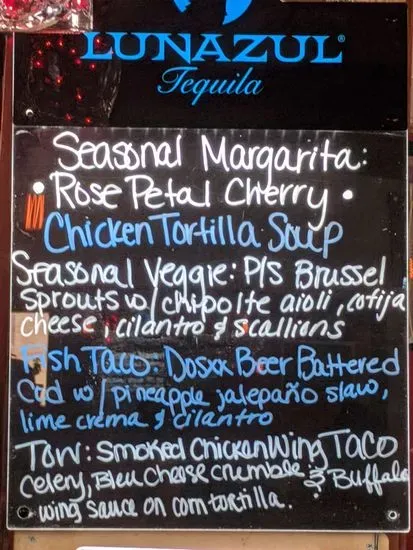 LUNAZUL®
Tequila
Seasonal Margarita:
• Rose Petal Cherry •
Chicken Tortilla Soup
Seasonal Veggie: P/S Brussel
Sprouts w/ chipolte aioli, cotija
cheese, cilantro & scallions
Fish Taco: Dosxx Beer Battered
Cod w/ pineapple jalepaño slaw,
lime crema & cilantro
TOW: Smoked Chicken Wing TACO
celery, Bleu cheese crumble & Buffalo
wing sauce on corn tortilla.